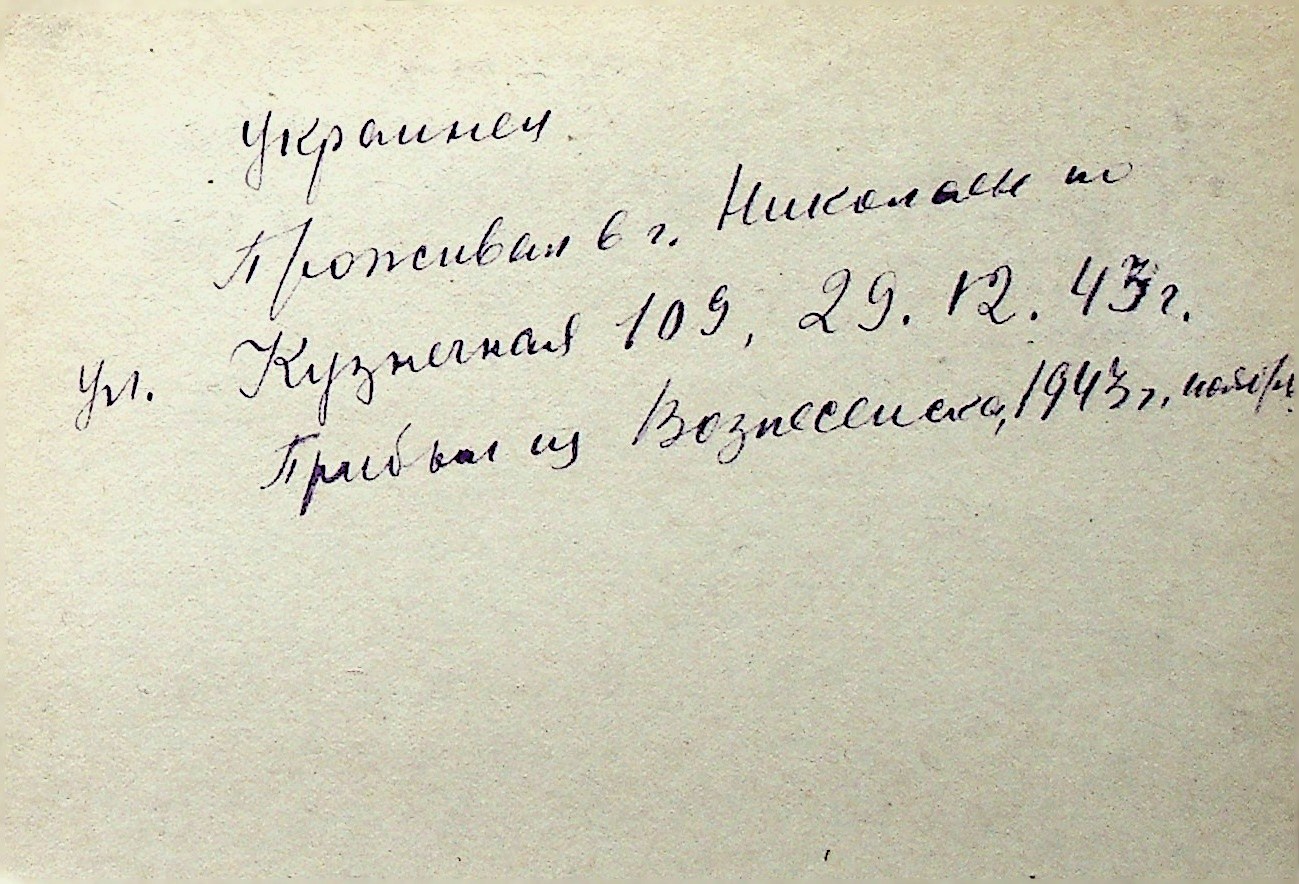 Украинец
Проживал в г. Николаеве по
ул. Кузнечная 109, 29.12.43г.
Прибыл из Вознесенска, 1943г, ноябрь